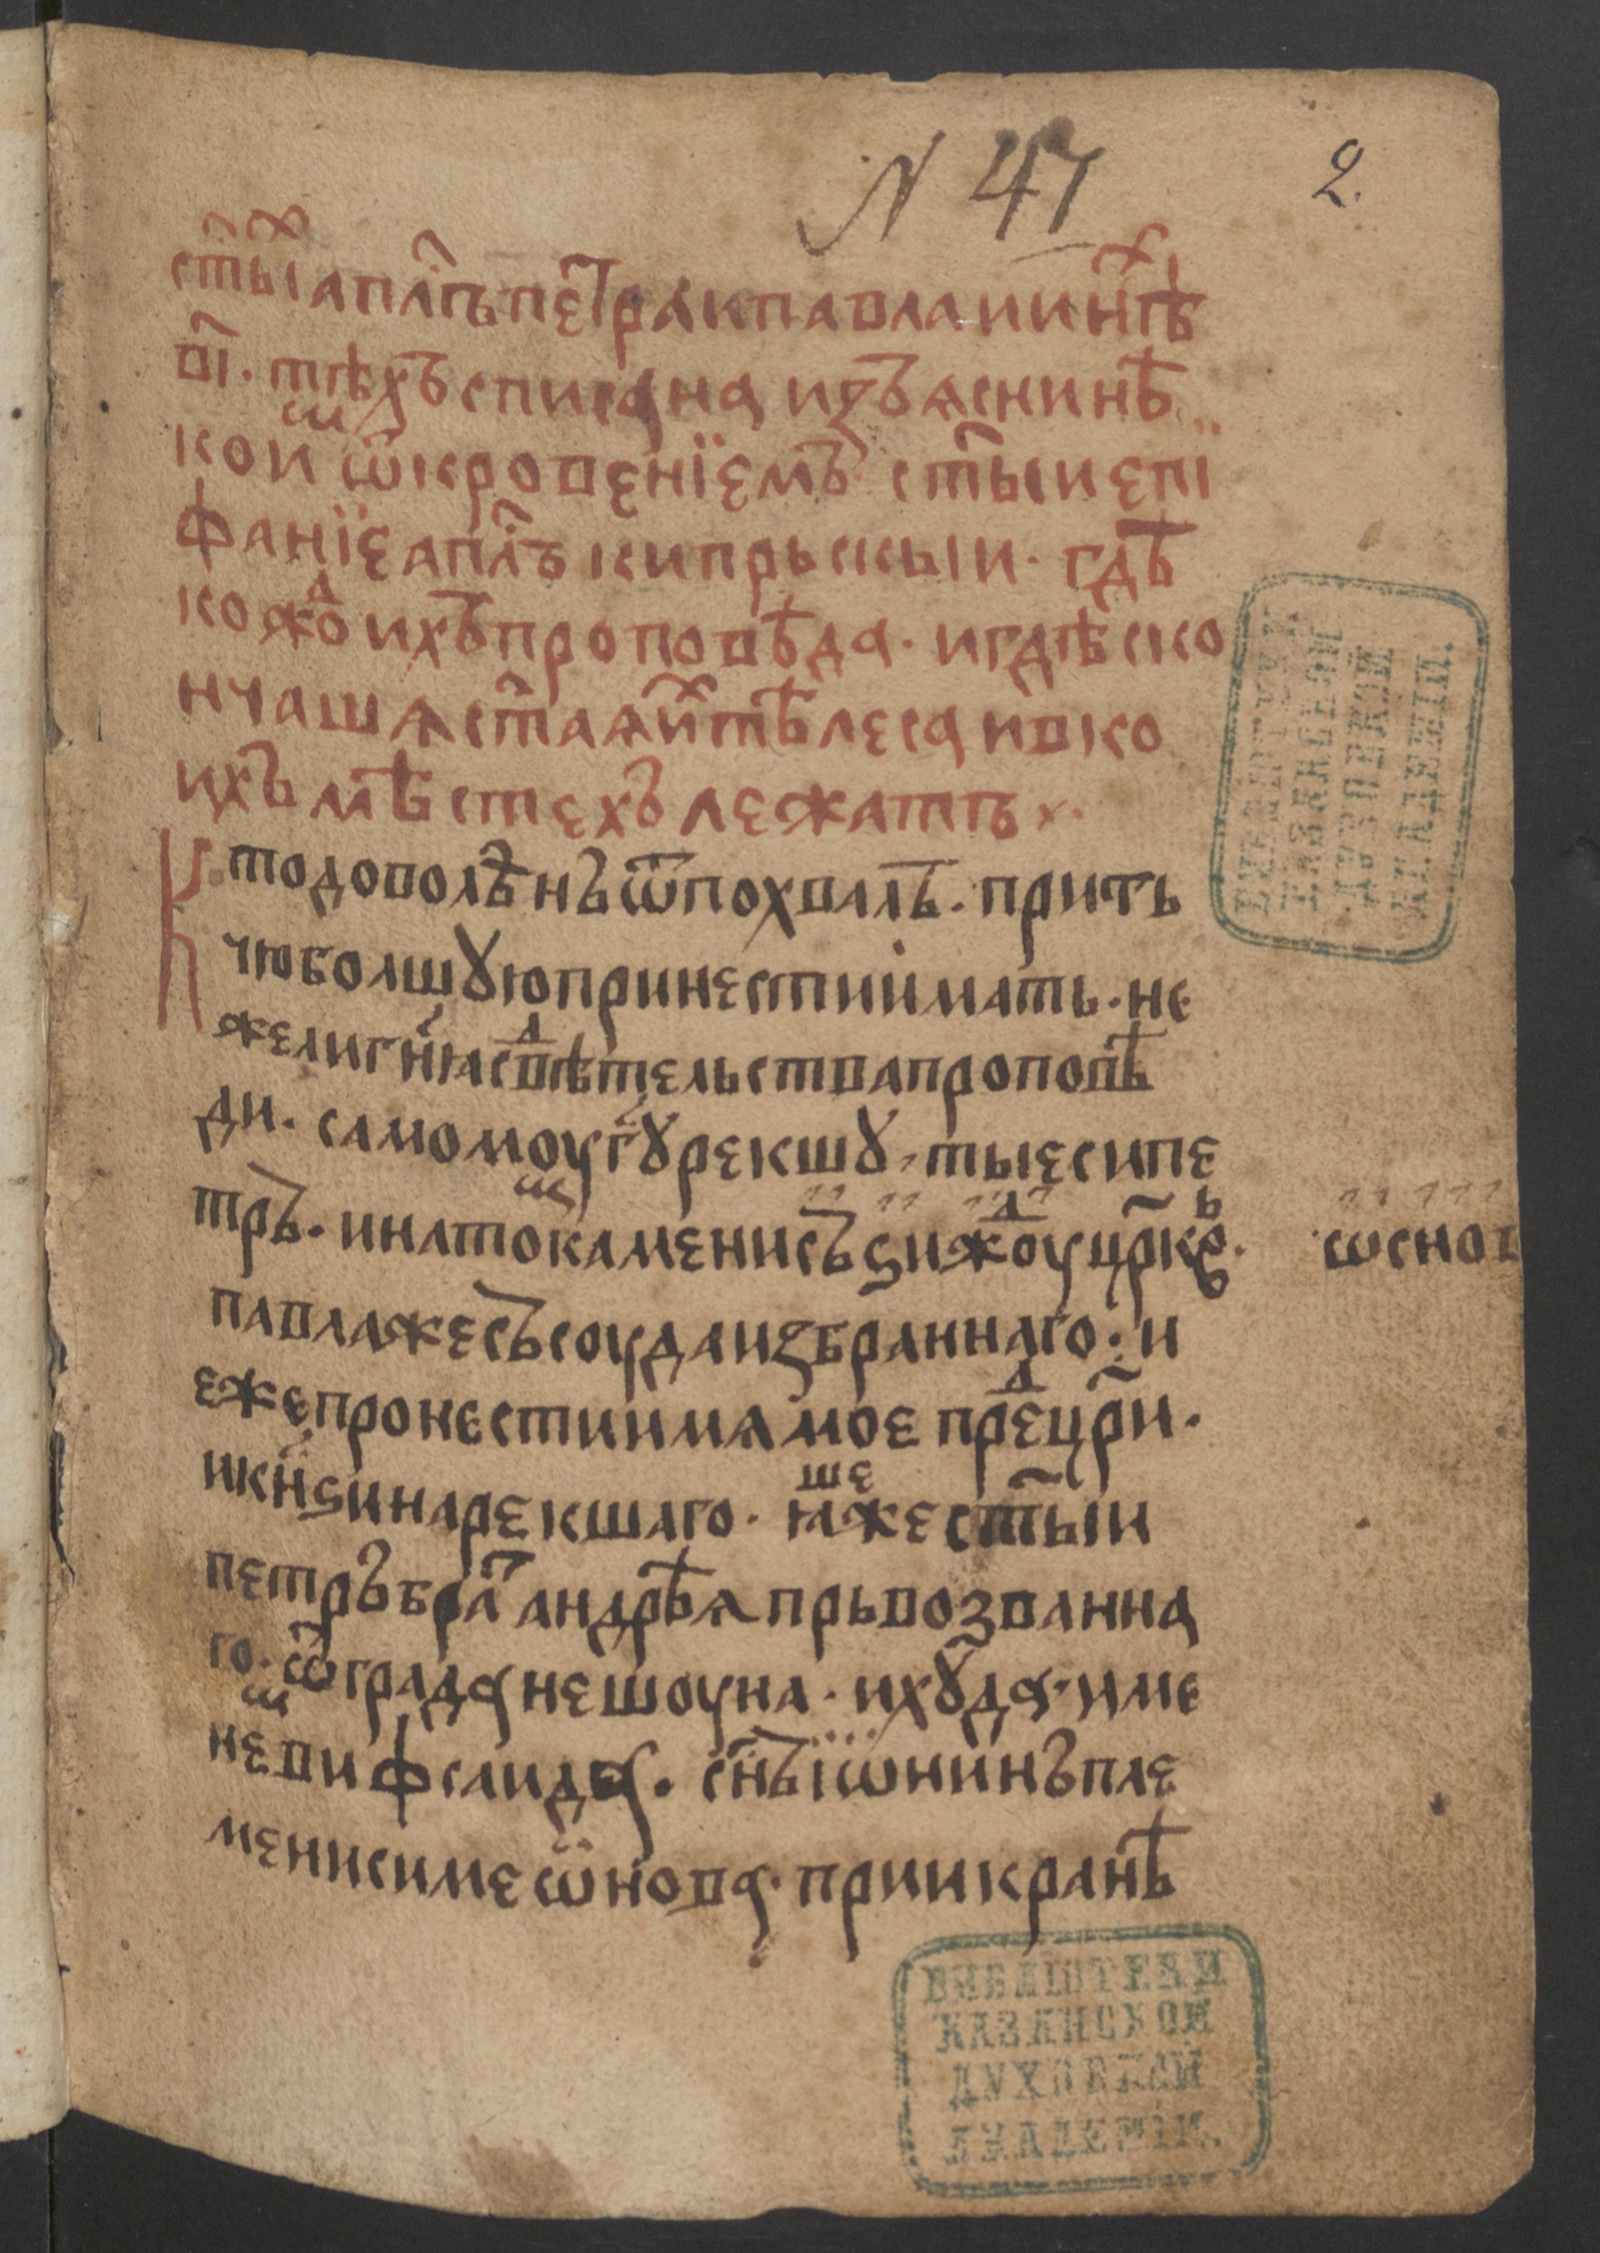 N 47
2.
ст҃ыⷯ апл҃ъ петра и павла и инѣⷯ
в҃і. тѣхъ списана изъяснинѣ
кои ѿкровенїемъ ст҃ыи епї
фанїе апл҃ъ кипрьскыи. гдѣ
кожⷣо ихъ проповѣда. и гдѣ ско
нчашѧ ст҃аѧ иⷯ тѣлеса и в ко
ихъ мѣстехъ лежатъ
Кто доволѣнъ ѿ похвалъ. прить
чю болшꙋю принести имать. не
жели гн҃ѧ свⷣѣтельства проповѣ
ди. самомоу гꙋ҃ рекшꙋ, ты еси пе
тръ. и на тоⷨ камени съѕижⷣоу цр҃квь.
ѡснов
павла же съсоуда избраннаго. и
еже пронести имѧ мое преⷣ цр҃и.
и кн҃ѕи нарекшаго. ꙗже ст҃ыи
петръ браⷮ андрѣѧ прьвозванна
го. ѿ града нешоуна. и хꙋда име
не виѳсаида. сн҃ъ іѡнинъ пле
мени симеѡнова. при икранѣ
БИБЛІОТЕКИ
КАЗАНСКОЙ
ДУХОВНОЙ
АКАДЕМІИ.
БИБЛІОТЕКИ
КАЗАНСКОЙ
ДУХОВНОЙ
АКАДЕМІИ.